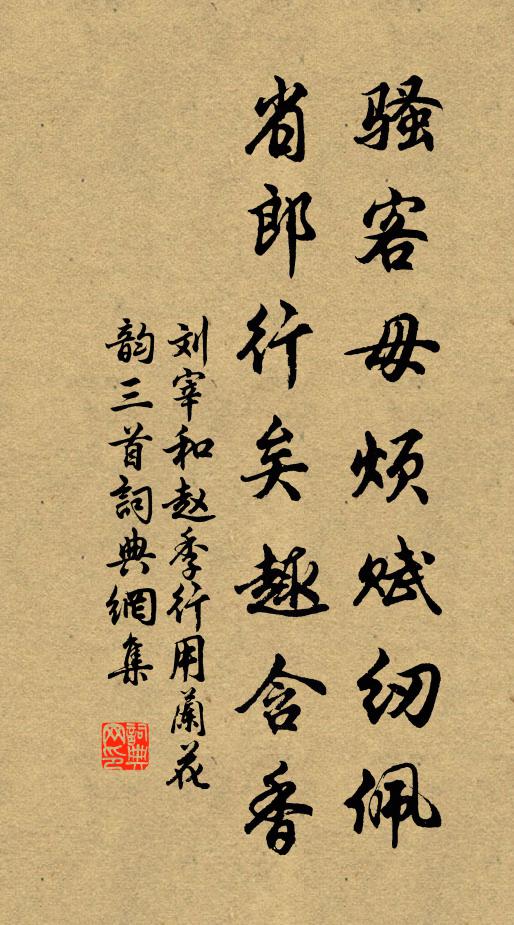 骚客毋烦赋纫佩
省郎行矣趣含香
刘宰和赵季行用蘭花
韵三首詞典網集
詞典网印